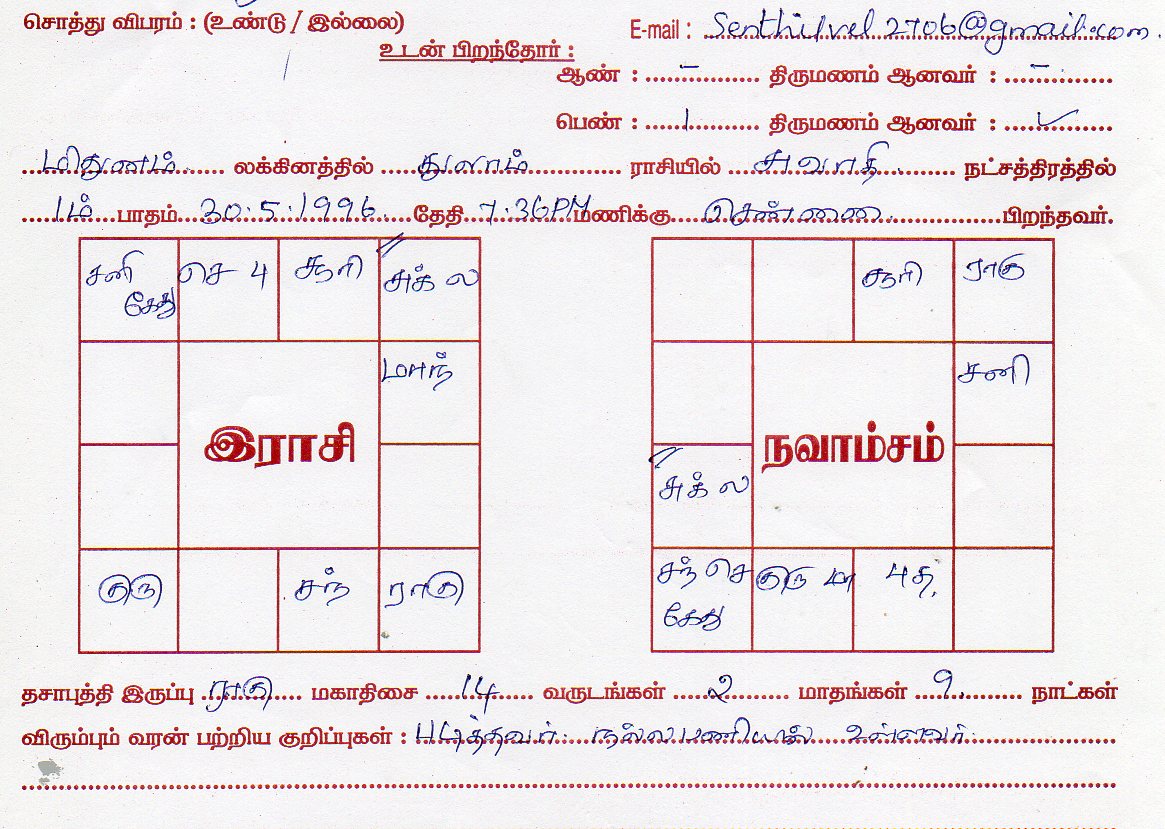 சொத்து விபரம் : (உண்டு / இல்லை)
E-mail : Senthilvel2706@gmail.com.
உடன் பிறந்தோர் :
ஆண் : – திருமணம் ஆனவர் : –
பெண் : 1 திருமணம் ஆனவர் : ✓
மிதுணம் லக்கினத்தில் துலாம் ராசியில் சுவாதி நட்சத்திரத்தில்
1ம் பாதம் 30.5.1996 தேதி 7.36PM மணிக்கு சென்னை பிறந்தவர்.
சனி கேது
செ 4
சூரி
சுக் ல
மாந்
இராசி
குரு
சந்
ராகு
சூரி
ராகு
சனி
நவாம்சம்
சுக் ல
சந் செ கேது
குரு மா
4த
தசாபுத்தி இருப்பு ராகு மகாதிசை 14 வருடங்கள் 2 மாதங்கள் 9 நாட்கள்
விரும்பும் வரன் பற்றிய குறிப்புகள் : படித்தவர். நல்ல பணியில் உள்ளவர்.